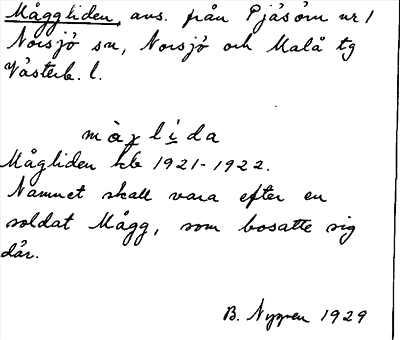 Måggliden, avs. från Pjäsörn nr 1
Norsjö sn, Norsjö och Malå tg
Västerb. l.
Mågliden kb 1921-1922.
Namnet skall vara efter en
soldat Mågg, som bosatte sig
där.
B. Nygren 1929